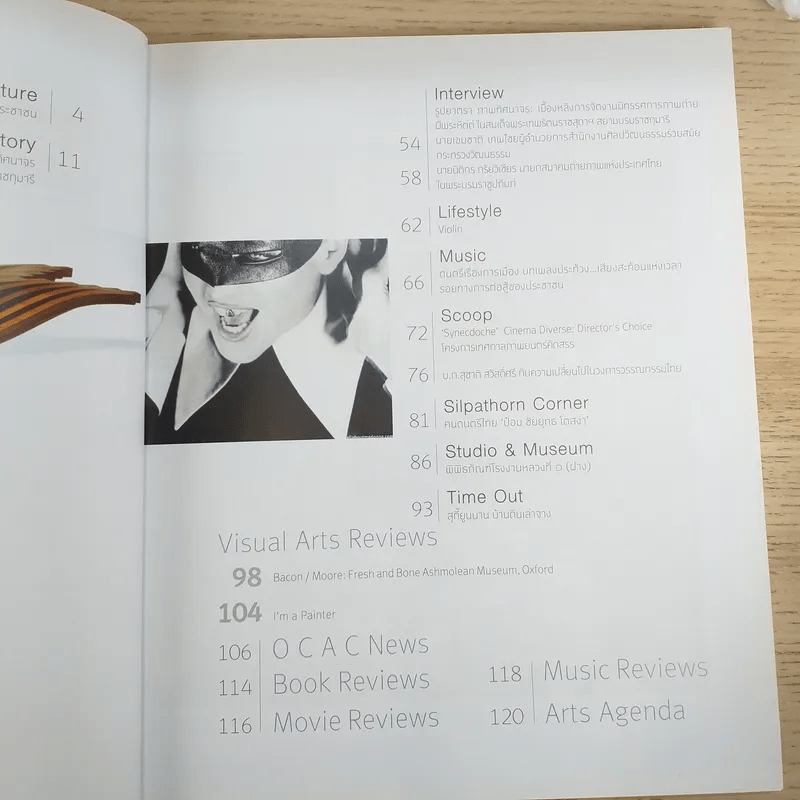 ture
ระชาชน
4
tory
ทัศนาจร
ราชกุมารี
11
Interview
รูปยาตรา ภาพทัศนาจร: เบื้องหลังการจัดงานนิทรรศการภาพถ่าย
ฝีพระหัตถ์ ในสมเด็จพระเทพรัตนราชสุดาฯ สยามบรมราชกุมารี
54
นายเขมชาติ เทพไชย ผู้อำนวยการสำนักงานศิลปวัฒนธรรมร่วมสมัย
กระทรวงวัฒนธรรม
58
นายนิติกร กรัยวิเชียร นายกสมาคมถ่ายภาพแห่งประเทศไทย
ในพระบรมราชูปถัมภ์
62
Lifestyle
Violin
66
Music
ดนตรีเรื่องการเมือง บทเพลงประท้วง...เสียงสะท้อนแห่งเวลา
รอยทางการต่อสู้ของประชาชน
72
Scoop
'Synecdoche' Cinema Diverse: Director's Choice
โครงการเทศกาลภาพยนตร์คัดสรร
76
บ.ก.สุชาติ สวัสดิ์ศรี กับความเปลี่ยนไปในวงการวรรณกรรมไทย
81
Silpathorn Corner
คนดนตรีไทย 'ป้อม ชัยยุทธ โตสง่า'
86
Studio & Museum
พิพิธภัณฑ์โรงงานหลวงที่ ๑ (ฝาง)
93
Time Out
สุกี้ยูนนาน บ้านดินเล่าจาง
Visual Arts Reviews
98
Bacon / Moore: Fresh and Bone Ashmolean Museum, Oxford
104
I'm a Painter
106
O C A C News
114
Book Reviews
116
Movie Reviews
118
Music Reviews
120
Arts Agenda